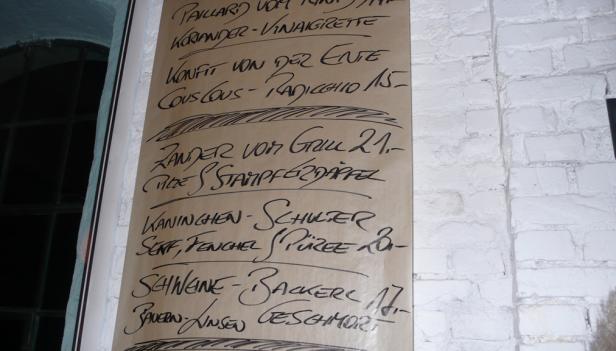 PAILLARD VOM RIND
KORIANDER-VINAIGRETTE
KONFIT VON DER ENTE
COUSCOUS-RADICCHIO 15.-
ZANDER VOM GRILL 21.-
PILZE / STAMPFERDÄPFEL
KANINCHEN-SCHULTER
SENF, FENCHEL / PÜREE 20.-
SCHWEINE-BACKERL 17.-
BAUERN-LINSEN GESCHMORT